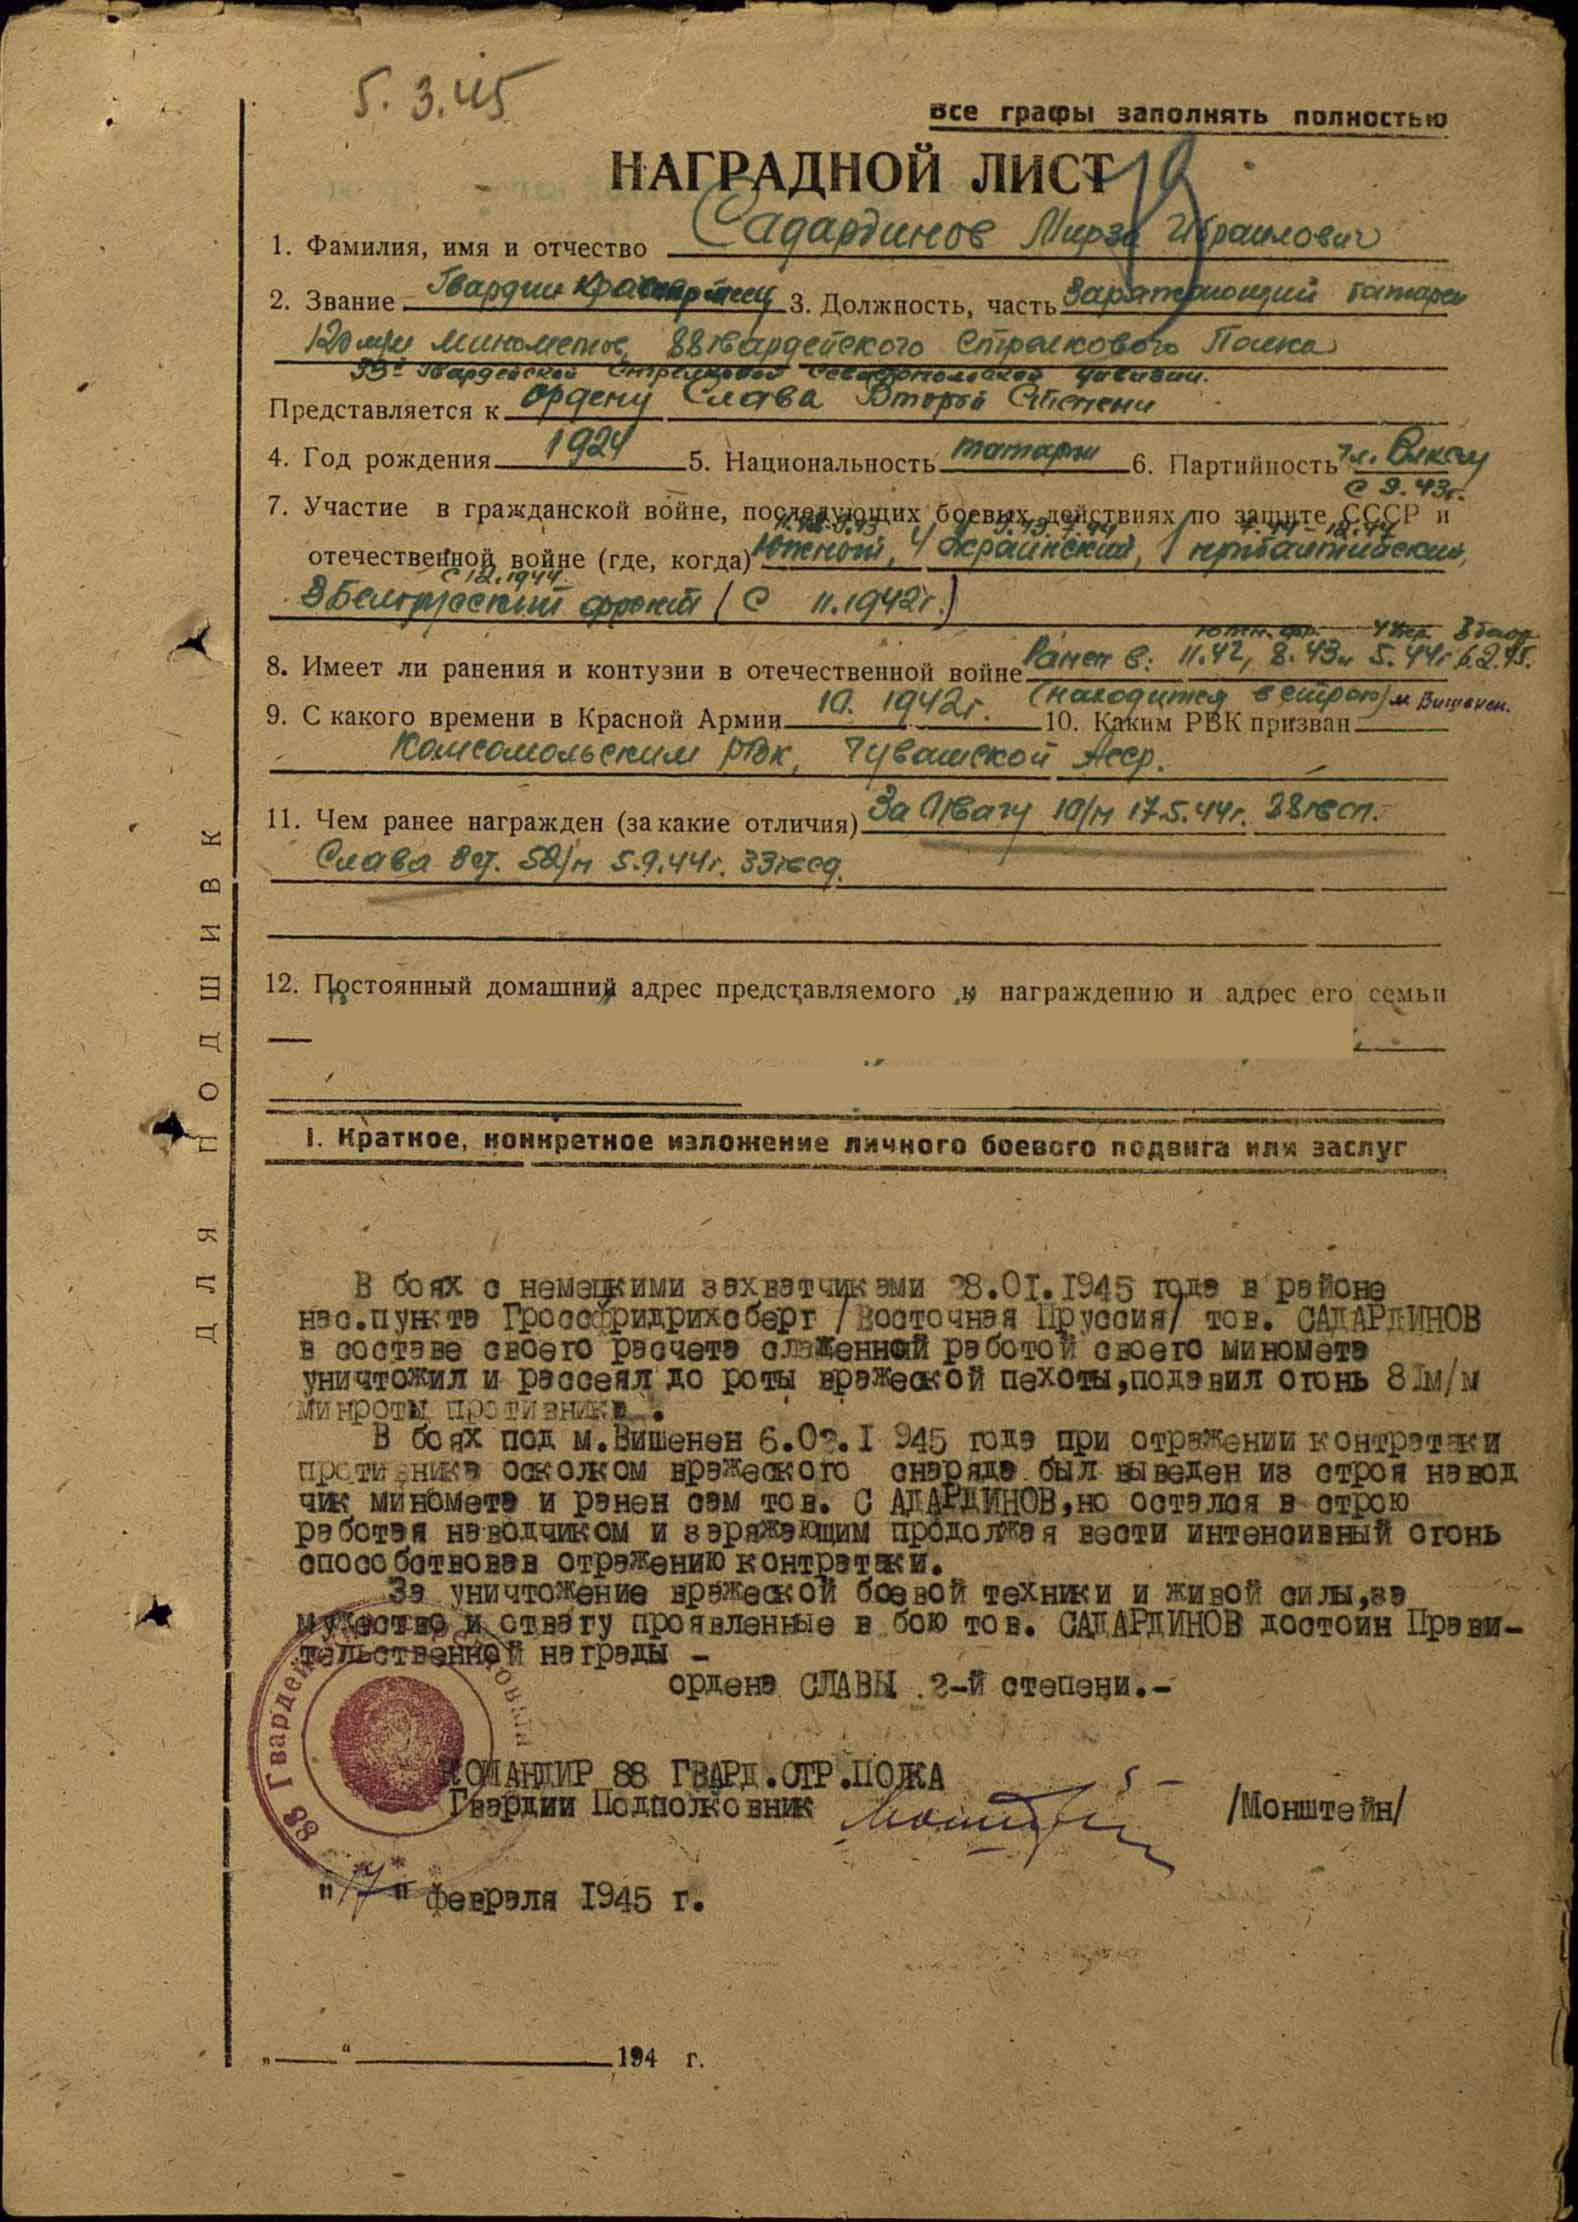 5.3.45
Все графы заполнять полностью
НАГРАДНОЙ ЛИСТ
1. Фамилия, имя и отчество Садардинов Мирза
2. Звание Гвардии Красноармеец 3. Должность, часть Заряжающий батареи
120 м/м минометов, 88 гвардейского Стрелкового Полка
33й Гвардейской Стрелковой Севастопольской дивизии.
Представляется к ордену Слава Второй Степени
4. Год рождения 1924 5. Национальность татарин 6. Партийность чл. Влксм
с 9.43г.
7. Участие в гражданской войне, последующих боевых действиях по защите СССР и
отечественной войне (где, когда) Южный, 4 Украинский, 1 прибалтийский,
с 12.1944
3 Белорусский фронт (с 11.1942г.)
8. Имеет ли ранения и контузии в отечественной войне Ранен в: 11.42, 8.43 и 5.44г 6.2.45.
(находится в строю) м. Вишенен.
9. С какого времени в Красной Армии 10. 1942г. 10. Каким РВК призван
Комсомольским РВК, Чувашской Асср.
11. Чем ранее награжден (за какие отличия) За Отвагу 10/н 17.5.44г. 88гвсп.
Слава 3ст. 50/н 5.9.44г. 33гвсд.
12. Постоянный домашний адрес представляемого к награждению и адрес его семьи
I. Краткое, конкретное изложение личного боевого подвига или заслуг
В боях с немецкими захватчиками 28.01.1945 года в районе
нас.пункта Гроссфридрихсберг /Восточная Пруссия/ тов. САДАРДИНОВ
в составе своего расчета слаженной работой своего миномета
уничтожил и рассеял до роты вражеской пехоты,подавил огонь 81м/м
минроты противника.
В боях под м.Вишенен 6.02.1945 года при отражении контратаки
противника осколком вражеского снаряда был выведен из строя навод
чик миномета и ранен сам тов. САДАРДИНОВ,но остался в строю
работая наводчиком и заряжающим продолжая вести интенсивный огонь
способствовав отражению контратаки.
За уничтожение вражеской боевой техники и живой силы,за
мужество и отвагу проявленные в бою тов. САДАРДИНОВ достоин Прави-
тельственной награды -
ордена СЛАВЫ 2-й степени.-
КОМАНДИР 88 ГВАРД.СТР.ПОЛКА
Гвардии Подполковник /Монштейн/
"17" февраля 1945 г.
„ “ 194 г.
88 Гвардей
ДЛЯ ПОДШИВК